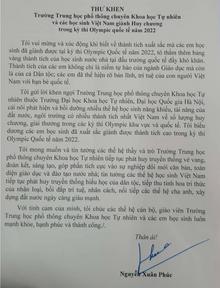 THƯ KHEN
Trường Trung học phổ thông chuyên Khoa học Tự nhiên
và các học sinh Việt Nam giành Huy chương
trong kỳ thi Olympic quốc tế năm 2022
Tôi vui mừng và xúc động khi biết về thành tích xuất sắc mà các em học
sinh đã giành được tại kỳ thi Olympic Quốc tế năm 2022, tô thắm thêm bảng
vàng thành tích của học sinh nước nhà tại đấu trường quốc tế đầy khó khăn.
Thành tích của các em không chỉ là niềm tự hào của ngành Giáo dục mà còn
là của cả Dân tộc; các em đã thể hiện rõ bản lĩnh, trí tuệ của con người Việt
Nam với bạn bè quốc tế.
Tôi gửi lời khen ngợi Trường Trung học phổ thông chuyên Khoa học Tự
nhiên thuộc Trường Đại học Khoa học Tự nhiên, Đại học Quốc gia Hà Nội,
cái nôi phát hiện và bồi dưỡng nhiều thế hệ học sinh năng khiếu, tài năng của
đất nước, ngôi trường có nhiều thành tích nhất Việt Nam về số lượng huy
chương, giải thưởng trong các kỳ thi Olympic khu vực và quốc tế. Tôi biểu
dương các em học sinh đã xuất sắc giành thành tích cao trong kỳ thi Olympic
Quốc tế năm 2022.
Tôi mong muốn và tin tưởng các thế hệ thầy và trò Trường Trung học
phổ thông chuyên Khoa học Tự nhiên tiếp tục phát huy truyền thống vẻ vang,
đoàn kết, sáng tạo, góp phần tích cực vào sự nghiệp đổi mới căn bản, toàn
diện giáo dục và đào tạo nước nhà; tin tưởng các em học sinh Việt Nam
tiếp tục phát huy truyền thống hiếu học của dân tộc, tiếp thu tinh hoa tri thức
của nhân loại, bồi đắp trí tuệ, nhân cách, nối tiếp các thế hệ cha anh, xây
dựng đất nước ngày càng giàu mạnh.
Với tình cảm của mình, tôi chúc các thế hệ cán bộ, giáo viên Trường
Trung học phổ thông chuyên Khoa học Tự nhiên và các em học sinh luôn
mạnh khỏe, hạnh phúc và thành công./.
Thân ái!
Nguyễn Xuân Phúc